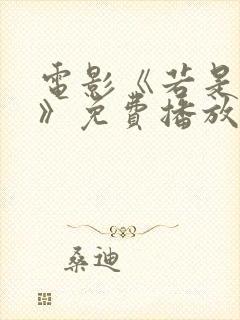 電影《若是
》免費播放
桑迪